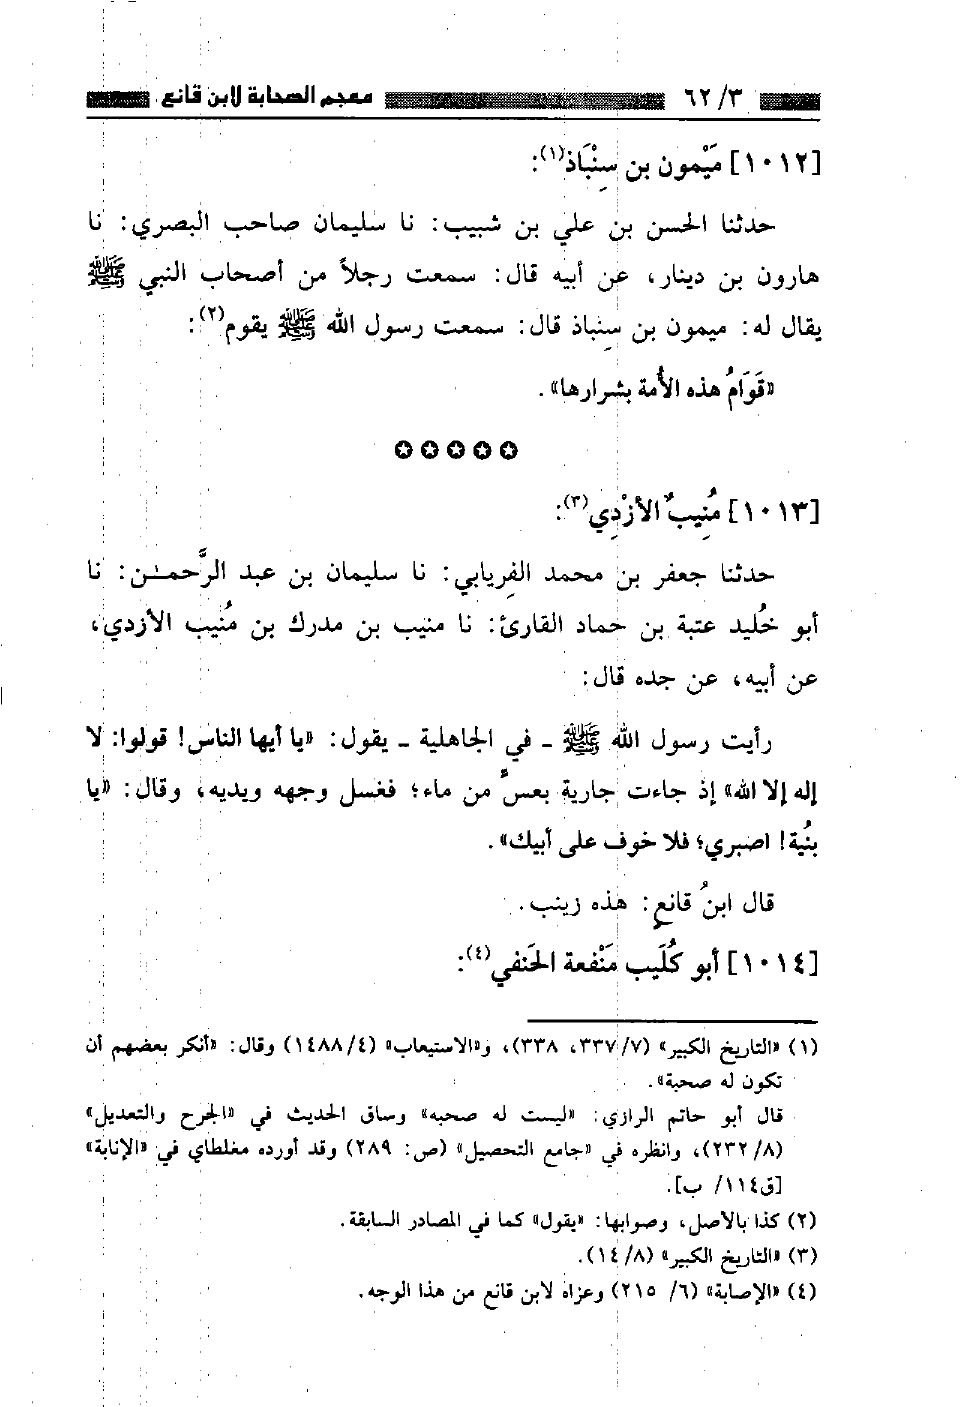 ٣/ ٦٢ معجم الصحابة لابن قانع
[١٠١٢] مَيْمون بن سِنْبَاذ(١):
حدثنا الحسن بن علي بن شبيب: نا سليمان صاحب البصري: نا
هارون بن دينار، عن أبيه قال: سمعت رجلاً من أصحاب النبي ﷺ
يقال له: ميمون بن سِنباذ قال: سمعت رسول الله ﷺ يقوم(٢):
«قَوَامُ هذه الأُمة بشرارها».
[١٠١٣] مُنِيبٌ الأزْدِي(٣):
حدثنا جعفر بن محمد الفِريابي: نا سليمان بن عبد الرَّحمـٰن: نا
أبو خُليد عتبة بن حماد القارئ: نا منيب بن مدرك بن مُنيب الأزدي،
عن أبيه، عن جده قال:
رأيت رسول الله ﷺ ـ في الجاهلية ـ يقول: «يا أيها الناس! قولوا: لا
إله إلا الله» إذ جاءت جارية بعسٍّ من ماء؛ فغسل وجهه ويديه، وقال: «يا
بنُية! اصبري؛ فلا خوف على أبيك».
قال ابنُ قانعٍ: هذه زينب.
[١٠١٤] أبو كُلَيب مَنْفعة الحَنفي(٤):
(١) «التاريخ الكبير» (٧/ ٣٣٧، ٣٣٨)، و«الاستيعاب» (٤/ ١٤٨٨) وقال: «أنكر بعضهم أن
تكون له صحبة».
قال أبو حاتم الرازي: «ليست له صحبه» وساق الحديث في «الجرح والتعديل»
(٨/ ٢٣٢)، وانظره في «جامع التحصيل» (ص: ٢٨٩) وقد أورده مغلطاي في «الإنابة»
[ق١١٤/ ب].
(٢) كذا بالأصل، وصوابها: «يقول» كما في المصادر السابقة.
(٣) «التاريخ الكبير» (٨/ ١٤).
(٤) «الإصابة» (٦/ ٢١٥) وعزاه لابن قانع من هذا الوجه.